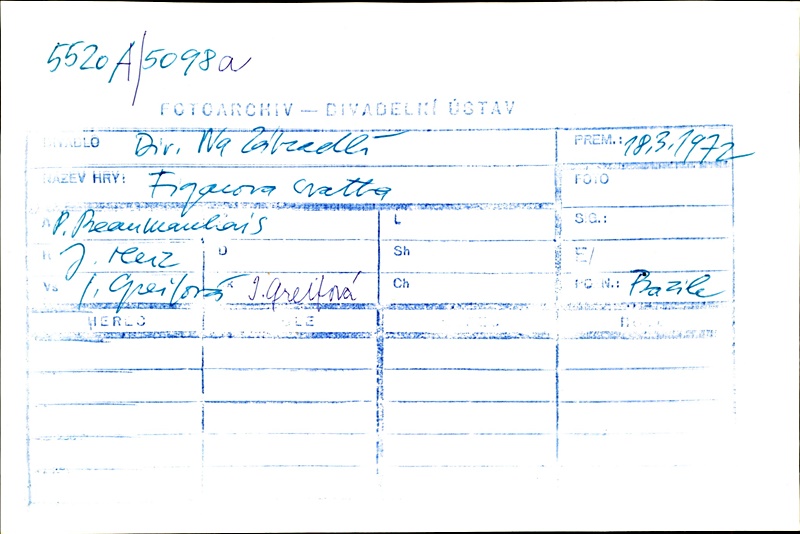 5520A/5098a
FOTOARCHIV — DIVADELNÍ ÚSTAV
DIVADLO Div. Na Zábradlí PREM.: 18.3.1972
NÁZEV HRY: Figarova svatba FOTO
A P. Beaumarchais L SIG.:
R J. Menz D Sh E/
Vs I. Greifová K I. Greifová Ch POZN.: Bazile
HEREC